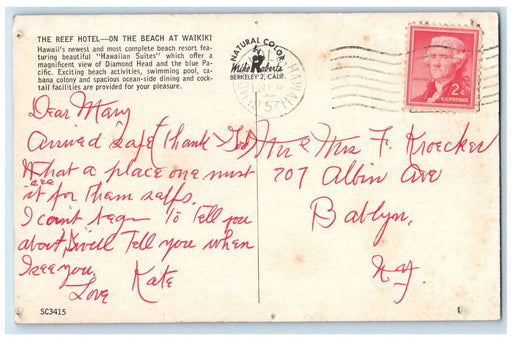 THE REEF HOTEL—ON THE BEACH AT WAIKIKI
Hawaii's newest and most complete beach resort fea-
turing beautiful "Hawaiian Suites" which offer a
magnificent view of Diamond Head and the blue Pa-
cific. Exciting beach activities, swimming pool, ca-
bana colony and spacious ocean-side dining and cock-
tail facilities are provided for your pleasure.
NATURAL COLOR
by
Mike Roberts
BERKELEY 2, CALIF.
HAWAII
1957
2¢
U.S. POSTAGE
Dear Mary
Arrived safe (thank God)
What a place one must
see
it for them selfs.
I can't began to tell you
about, I will tell you when
I see you.
Love Kate
Mr & Mrs F. Kroecker
707 Albin Ave
Bablyn,
N.Y.
SC3415